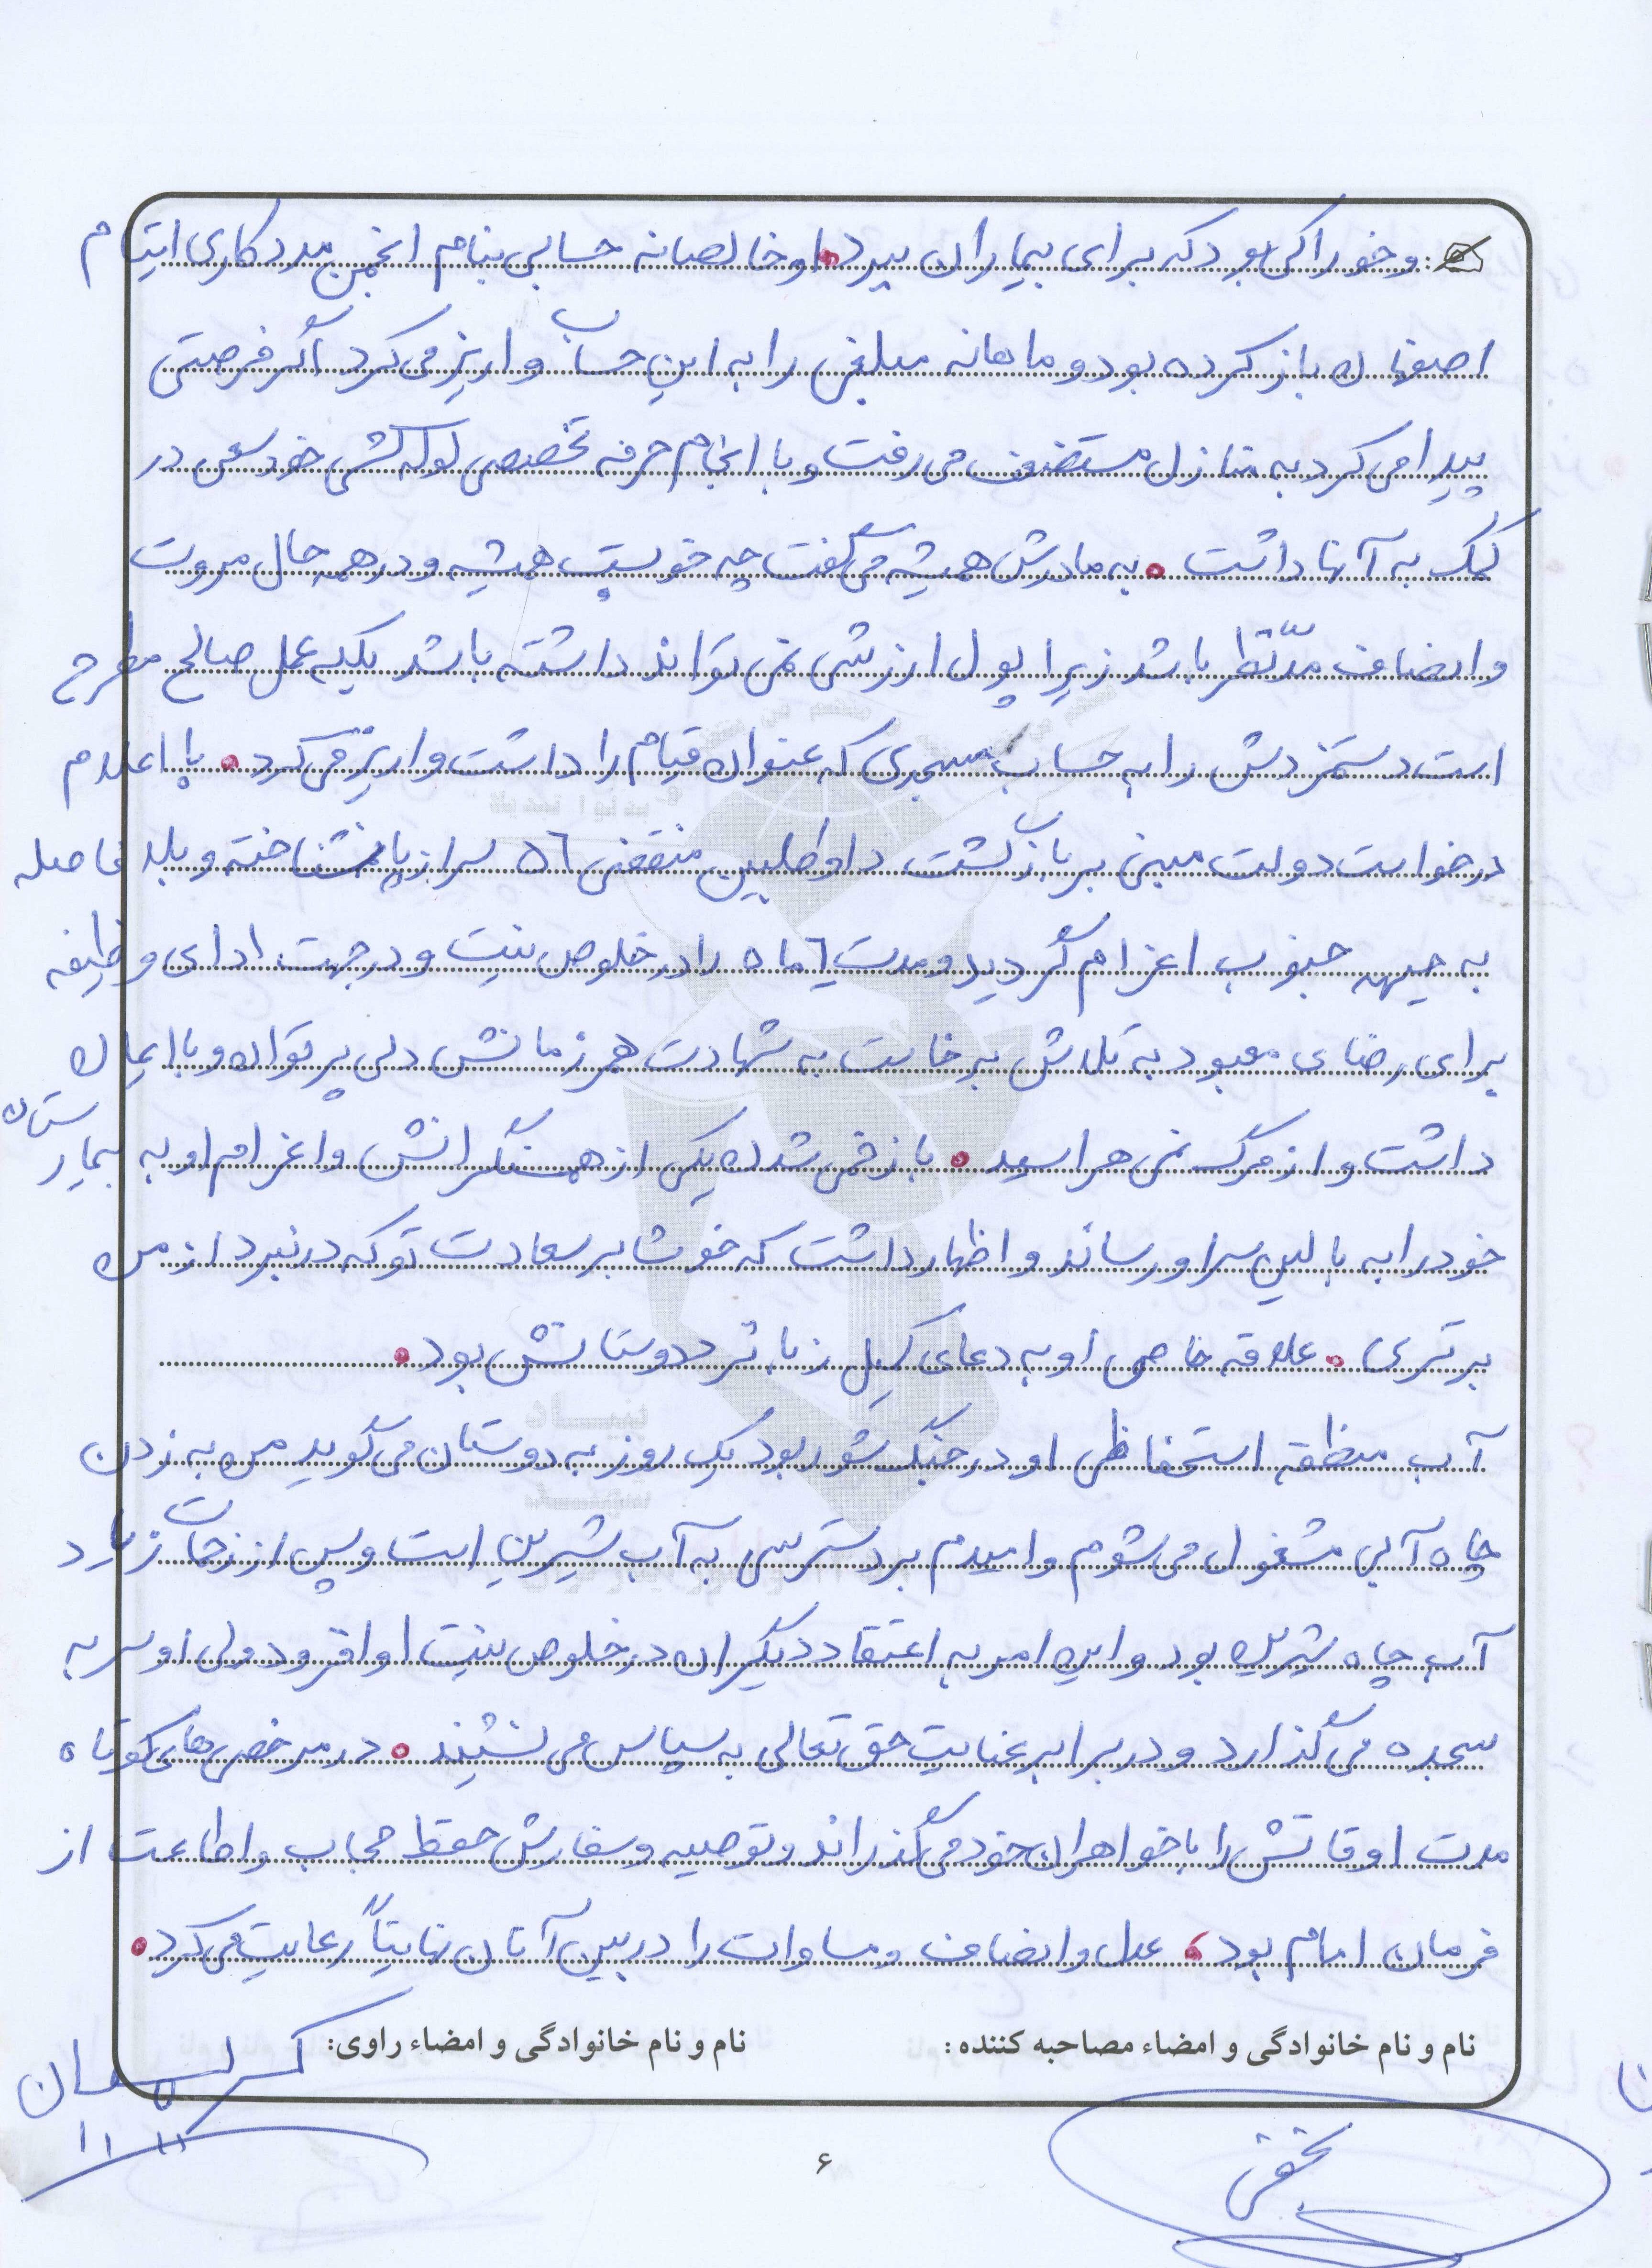 وخوراکی بود که برای بیماران ببرد. او خالصانه حسابی بنام انجمن مددکاری ایتام
اصفهان باز کرده بود و ماهانه مبلغی را به این حساب واریز می کرد اگر فرصتی
پیدا می کرد به منازل مستضعف می رفت و با انجام حرفه تخصصی لوله کشی خود سعی در
کمک به آنها داشت . به مادرش همیشه می گفت چه خوبست همیشه و در همه حال مروت
وانصاف مدّنظر باشد زیرا پول ارزشی نمی تواند داشته باشد بلکه عمل صالح مطرح
است دستمزدش را به حساب مسجدی که عنوان قیام را داشت واریز می کرد . با اعلام
درخواست دولت مبنی بر بازگشت داوطلبین منقضی ٥٦ سر از پا نشناخته و بلا فاصله
به جبهه جنوب اعزام گردید و مدت ٦ ماه را در خلوص نیت و در جهت ادای وظیفه
برای رضای معبود به تلاش برخاست به شهادت همرزمانش دلی پر توان و با ایمان
داشت و از مرگ نمی هراسید . با زخمی شدن یکی از همسنگرانش واعزام او به بیمارستان
خود را به بالین سر او رساند و اظهار داشت که خوشا بر سعادت تو که در نبرد از من
برتری . علاقه خاص او به دعای کمیل زبانزد دوستانش بود .
آب منطقه استحفاظی او در جنگ شور بود یک روز به دوستان می گوید من به زدن
چاه آبی مشغول می شوم و امیدم بر دسترسی به آب شیرین است و پس از زحمات زیاد
آب چاه شیرین بود و این امر به اعتقاد دیگران در خلوص نیت او افزود ولی او سر به
سجده می گذارد و در برابر عنایت حق تعالی به سپاس می نشیند . در مرخصی های کوتاه
مدت اوقاتش را با خواهران خود می گذراند و توصیه و سفارش حفظ حجاب و اطاعت از
فرمان امام بود . عدل و انصاف و مساوات را در بین آنان نهایتاً رعایت می کرد .
نام و نام خانوادگی و امضاء مصاحبه کننده : نام و نام خانوادگی و امضاء راوی:
۶